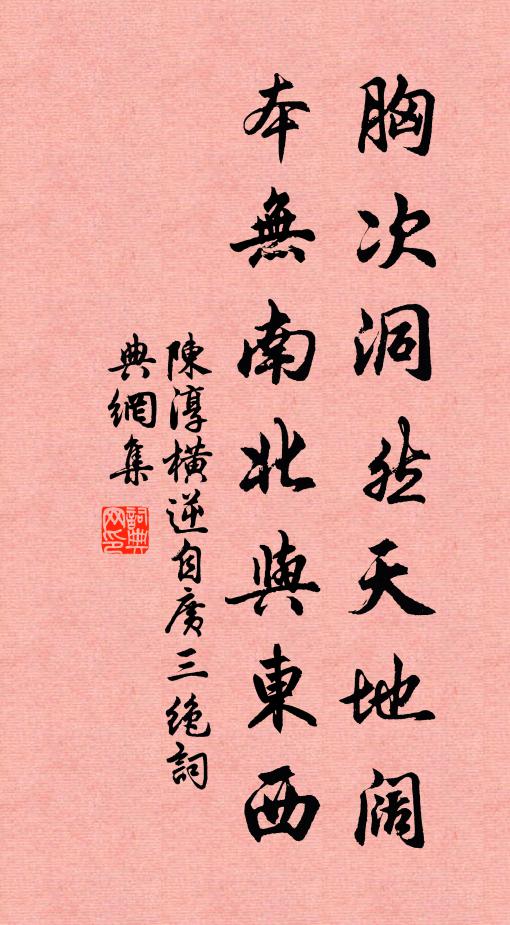 胸次洞然天地阔
本無南北與東西
陳淳橫逆自廣三絶詞
典網集
詞典網印